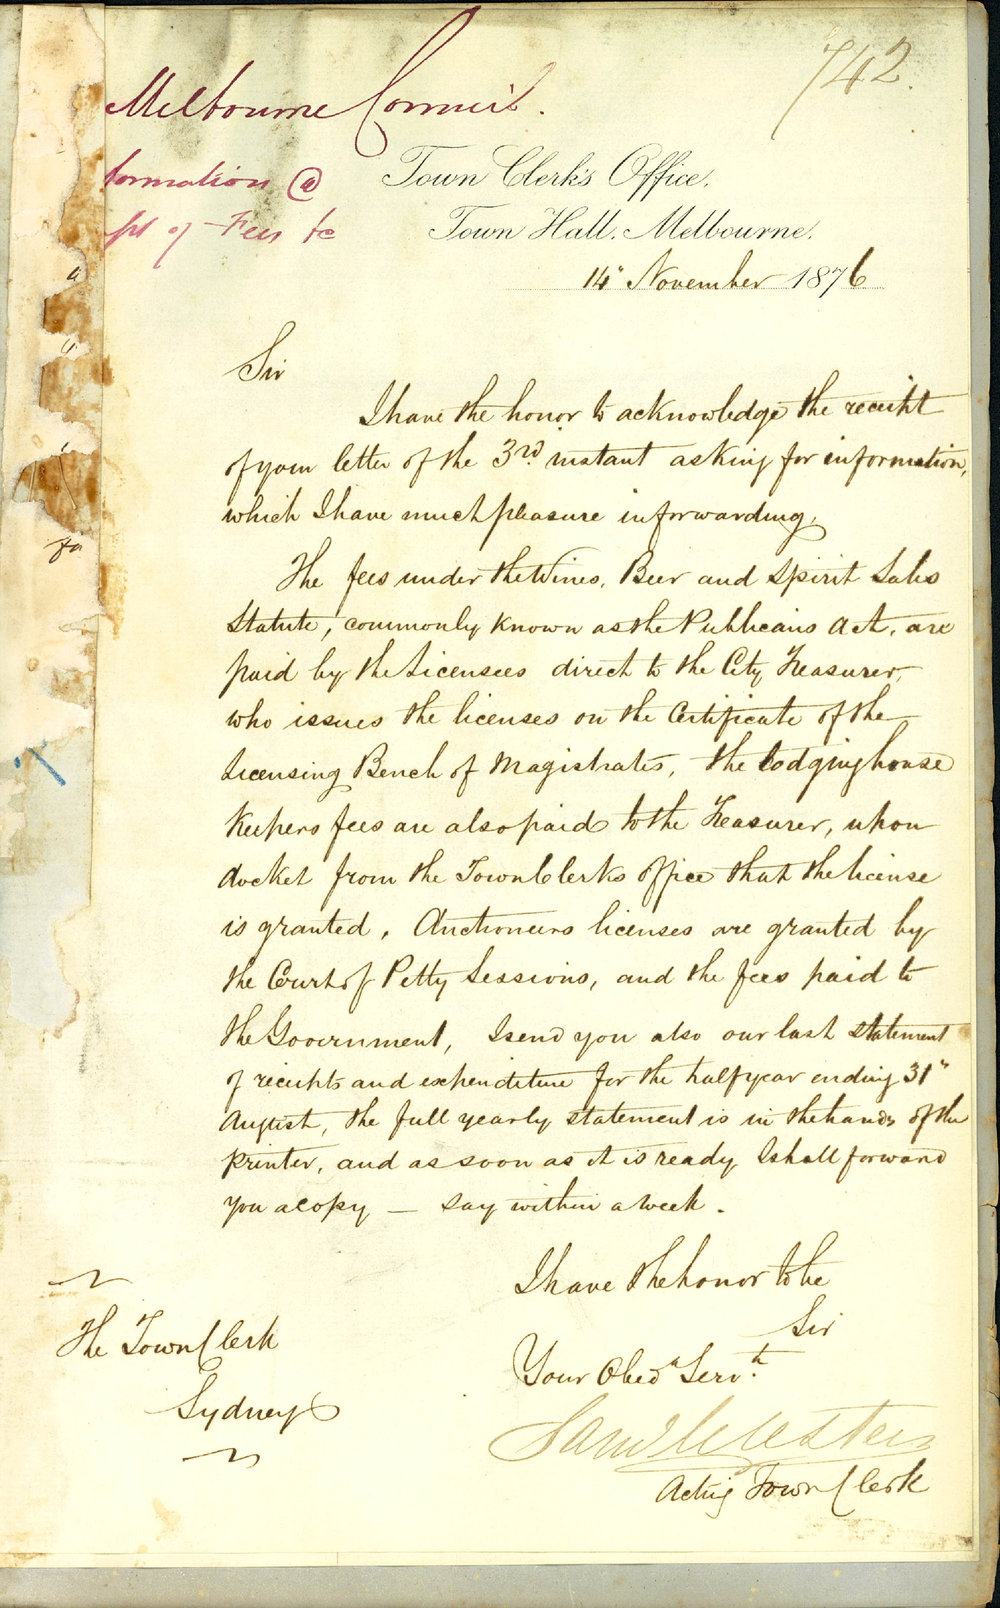 742.
Melbourne Council.
formation @
pt of Fees &c
Town Clerk's Office,
Town Hall, Melbourne.
14" November 1876
Sir
I have the honor to acknowledge the receipt
of your letter of the 3rd. instant asking for information,
which I have much pleasure in forwarding.
The fees under the Wines, Beer and Spirit Sales
Statute, commonly known as the Publicans Act, are
paid by the Licensees direct to the City Treasurer,
who issues the licenses on the Certificate of the
Licensing Bench of Magistrates, the lodginghouse
Keepers fees are also paid to the Treasurer, upon
docket from the Town Clerks office that the license
is granted, Auctioneers licenses are granted by
the Court of Petty Sessions, and the fees paid to
the Government, I send you also our last statement
of receipts and expenditure for the half year ending 31"
August, the full yearly statement is in the hands of the
printer, and as soon as it is ready I shall forward
you a copy — say within a week.
I have the honor to be
Sir
Your Obed" Servt.
Acting Town Clerk
The Town Clerk
Sydney